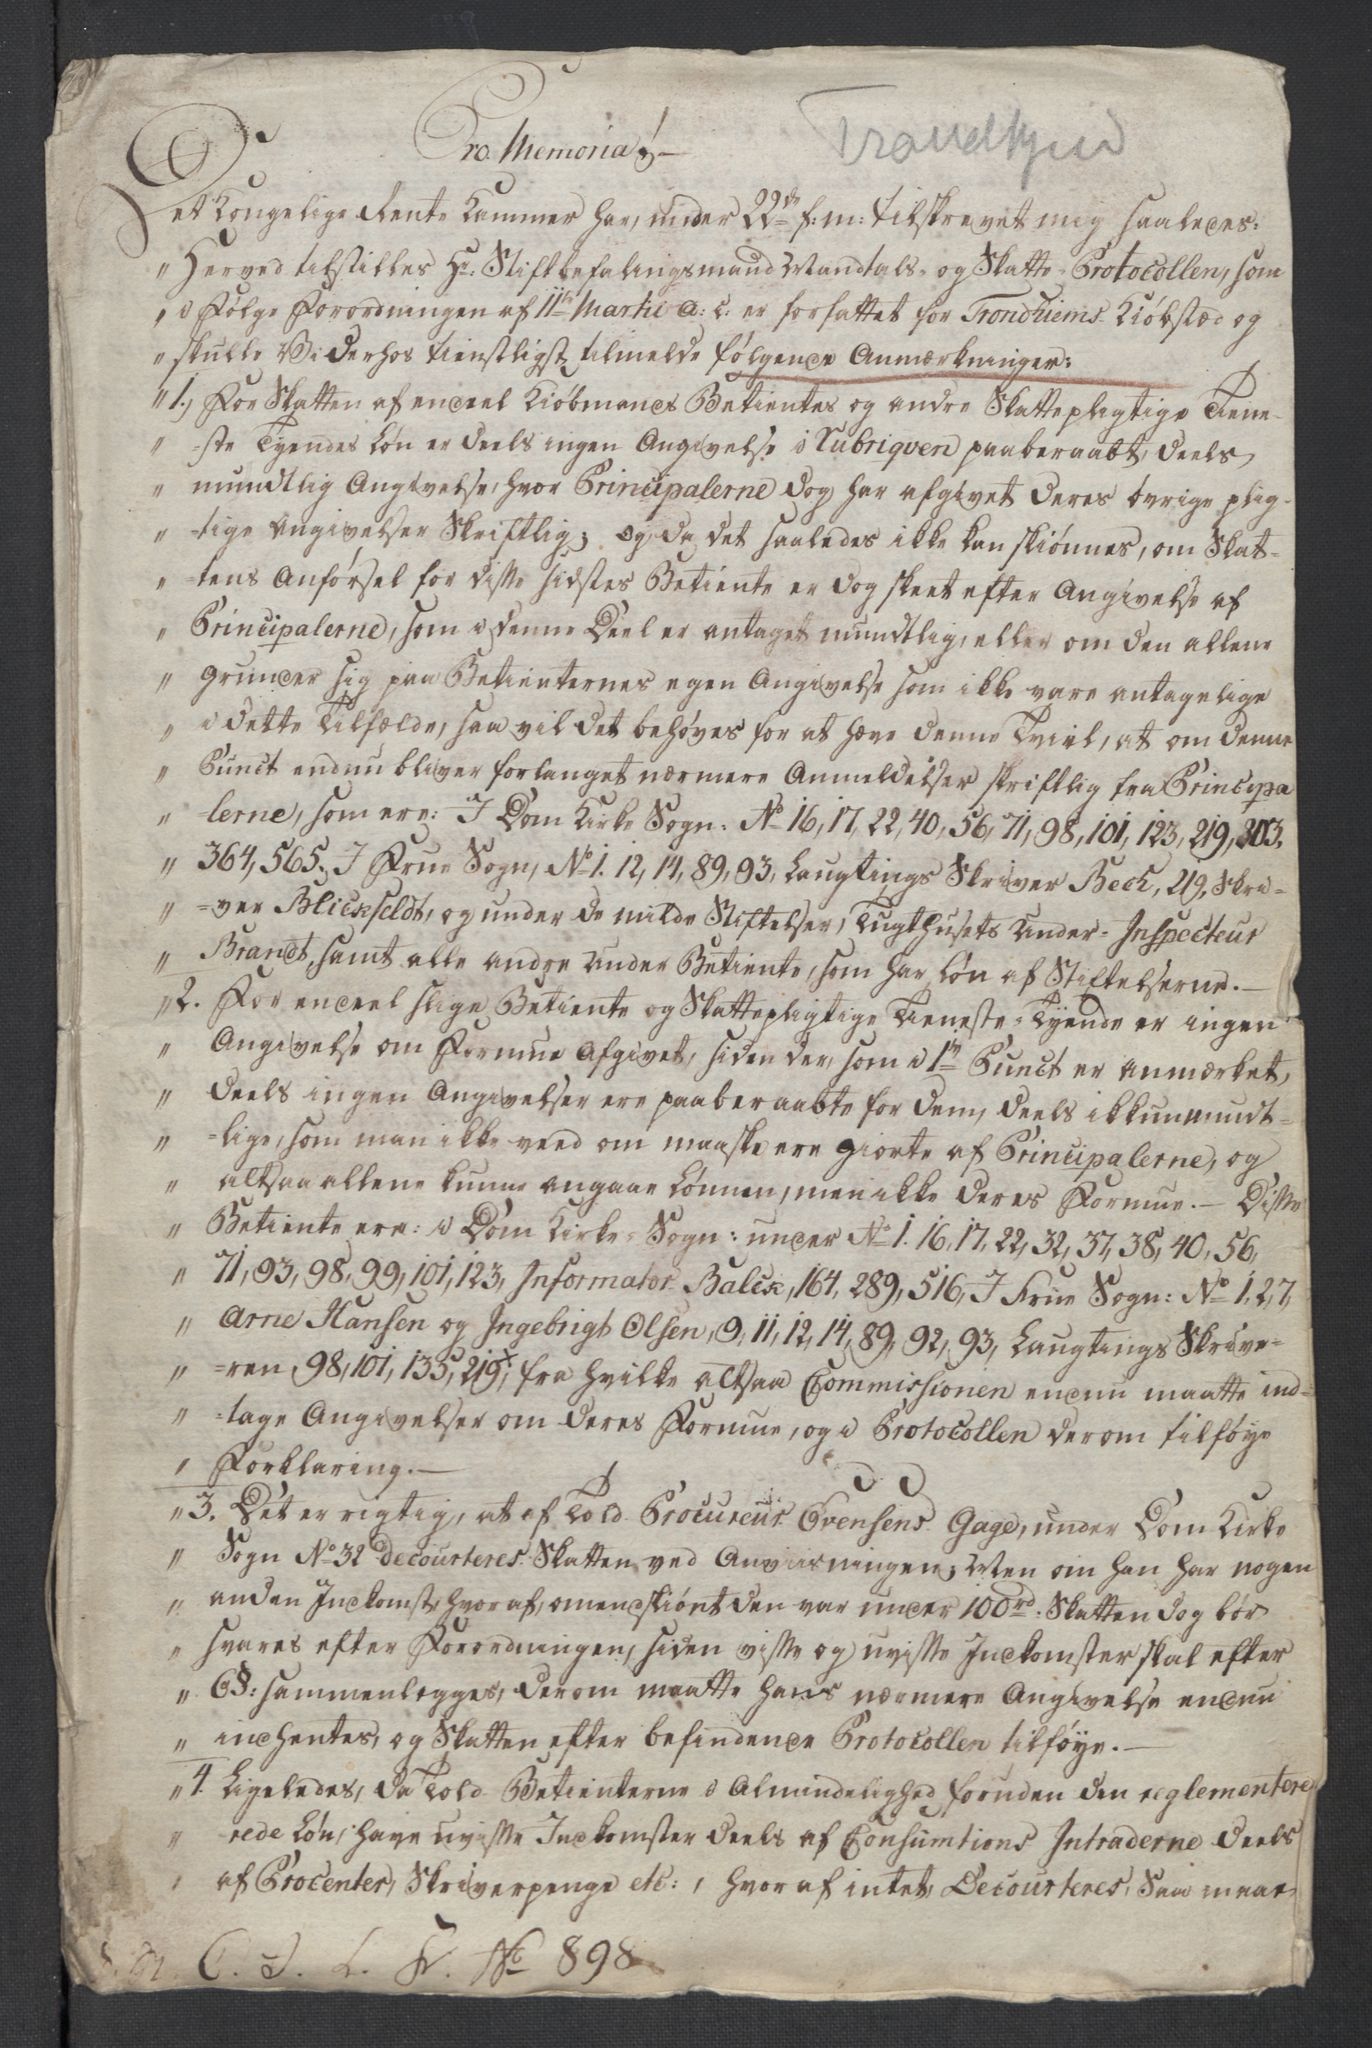 Trondhjem
Pro Memoria!
Det Kongelige Rente Kammer har, under 22de f: m: tilskrevet mig saaledes:
" Herved tilstilles Hr: Stiftbefalingsmand Mandtals- og Skatte-Protocollen, som
" i Følge Forordningen af 11te Martii a: c: er forfattet for Trondhiems Kiøbstæd og
" skulle Vi derhos tienstligst tilmelde følgende Anmærkninger:
" 1., For Skatten af endeel Kiøbmands Betientes og andre Skattepligtige Tiene-
" =ste Tyendes Løn er deels ingen Angivelse i Rubriqven paaberaabt, deels
" mundtlig Angivelse, hvor Principalerne dog har afgivet deres øvrige plig-
" =tige Angivelser Skriftlig; og da det saaledes ikke kan skiønnes, om Skat-
" =tens Anførsel for disse sidstes Betiente er dog skeet efter Angivelse af
" Principalerne, som i denne Deel er antaget mundtlig, eller om den allene
" grunder sig paa Betienternes egen Angivelse som ikke vare antagelige
" i dette Tilfælde, saa vil det behøves for at hæve denne Tvivl, at om denne
" Punct endnu bliver forlanget nærmere Anmeldelser skriftlig fra Principa
" =lerne, som ere: I Dom Kirke Sogn: No 16, 17, 22, 40, 56, 71, 98, 101, 123, 219, 303,
" 364, 565. I Frue Sogn, No 1. 12, 14, 89, 93, Laugtings Skriver Bech, 219, Skri-
" =ver Blickfeldt, og under de milde Stiftelser, Tugthusets Under-Inspecteur
" Brandt, samt alle andre Under Betiente, som har Løn af Stiftelserne.—
" 2. For endeel slige Betiente og Skattepligtige Tieneste-Tyende er ingen
" Angivelse om Formue afgivet, siden der, som i 1te Punct er anmærket,
" deels ingen Angivelser ere paaberaabte for dem, deels ikkun mundt-
" =lige, som man ikke veed om maaske ere giorte af Principalerne, og
" altsaa allene kunne angaae Lønnen, men ikke deres Formue.— Disse
" Betiente ere: i Dom Kirke-Sogn: under No 1. 16, 17, 22, 32, 37, 38, 40, 56,
" 71, 93, 98, 99, 101, 123, Informator Balck, 164, 289, 516, I Frue Sogn: No 1, 2, 7,
" Arne Hansen og Ingebrigt Olsen, 9, 11, 12, 14, 89, 92, 93, Laugtings Skrive-
" =ren, 98, 101, 135, 219, fra hvilke altsaa Commissionen endnu maatte ind-
" =tage Angivelser om deres Formue, og i Protocollen derom tilføye
" Forklaring.—
" 3. Det er rigtig, at af Told Procureur Evensens Gage, under Dom Kirke
" Sogn No 32 decourteres Skatten ved Anviisningen; Men om han har nogen
" anden Indkomst, hvoraf, omendskiønt den var under 100rd. Skatten dog bør
" svares efter Forordningen, siden visse og uvisse Indkomster skal efter
" 6§: sammenlegges, derom maatte hans nærmere Angivelse endnu
" indhentes, og Skatten efter befindende Protocollen tilføye.—
" 4. Ligeledes, da Told-Betienterne i Almindelighed foruden den reglementere
" =rede Løn, have uvisse Indkomster deels af Consumtions Intraderne deels
" af Procenter, Skriverpenge etc:, hvoraf intet Decourteres, Saa maat-
C. J. L. Fr. No 898